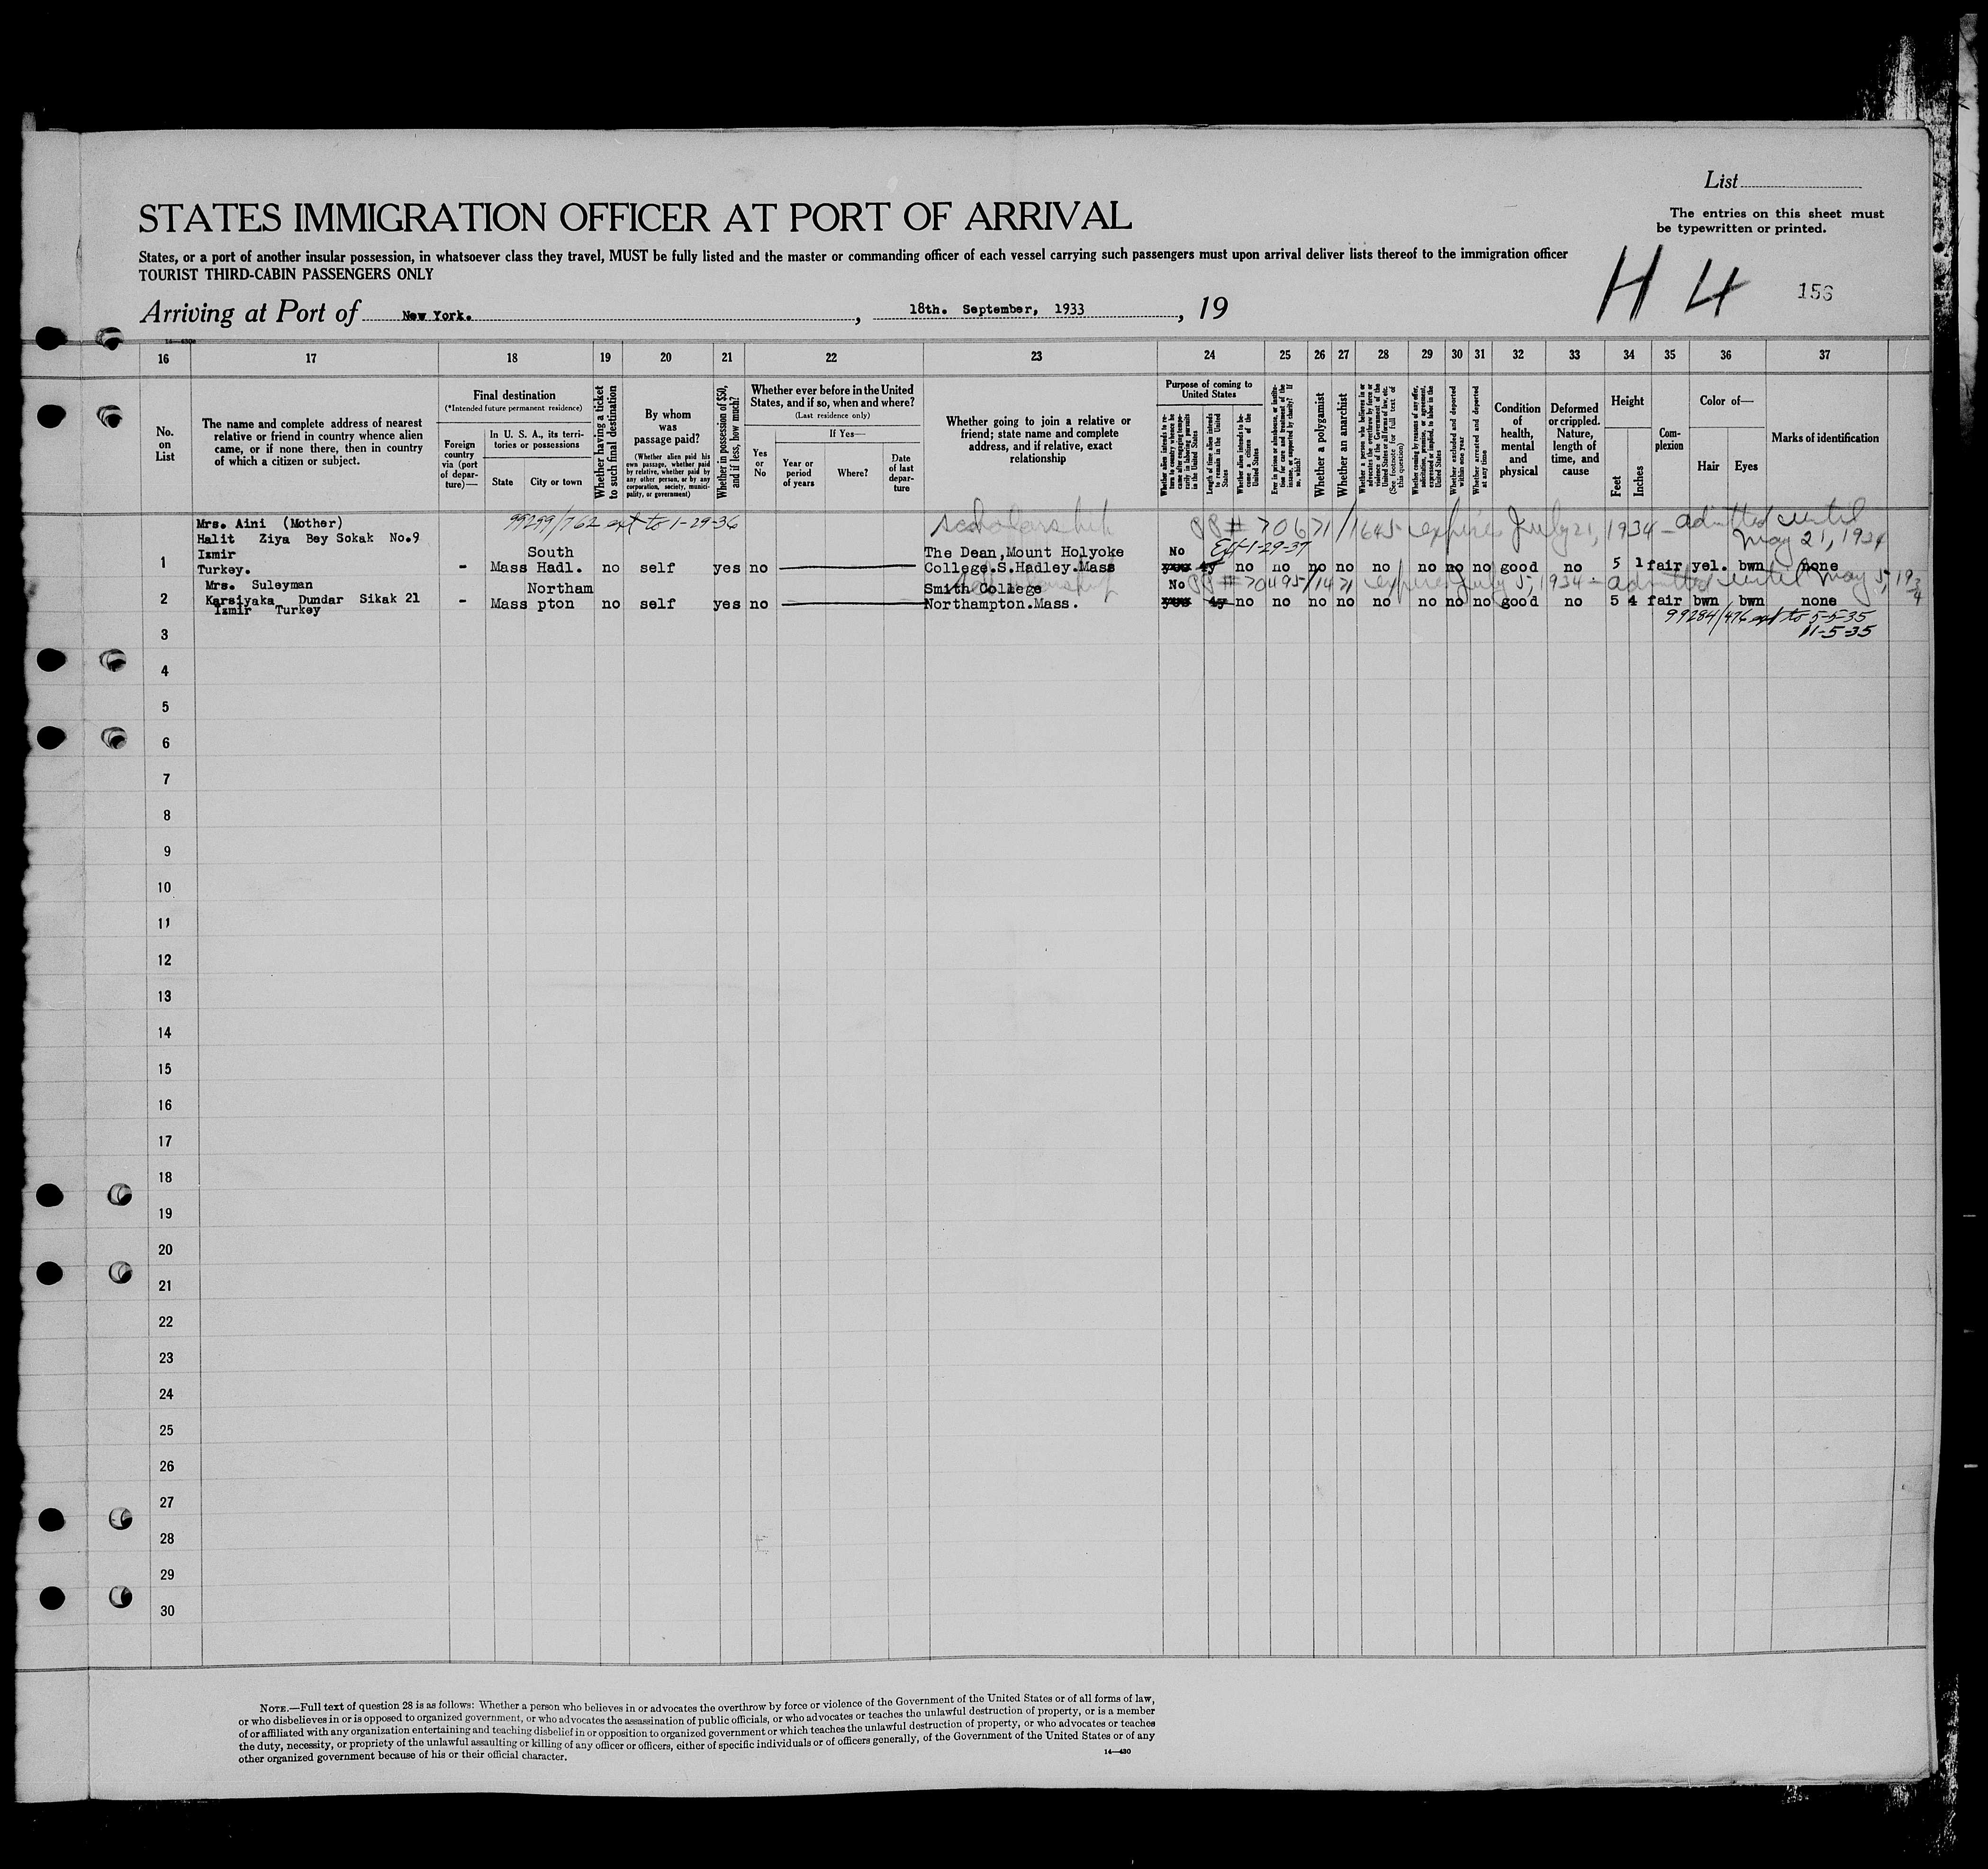 List
STATES IMMIGRATION OFFICER AT PORT OF ARRIVAL
The entries on this sheet must
be typewritten or printed.
States, or a port of another insular possession, in whatsoever class they travel, MUST be fully listed and the master or commanding officer of each vessel carrying such passengers must upon arrival deliver lists thereof to the immigration officer
TOURIST THIRD-CABIN PASSENGERS ONLY
H 4 156
Arriving at Port of New York. , 18th. September, 1933 , 19
16 17 18 19 20 21 22 23 24 25 26 27 28 29 30 31 32 33 34 35 36 37
No.
on
List
The name and complete address of nearest
relative or friend in country whence alien
came, or if none there, then in country
of which a citizen or subject.
Final destination
(*Intended future permanent residence)
Foreign
country
via (port
of depar-
ture)—
In U. S. A., its terri-
tories or possessions
State City or town
Whether having a ticket
to such final destination
By whom
was
passage paid?
(Whether alien paid his
own passage, whether paid
by relative, whether paid by
any other person, or by any
corporation, society, munici-
pality, or government)
Whether in possession of $50,
and if less, how much?
Whether ever before in the United
States, and if so, when and where?
(Last residence only)
Yes
or
No
If Yes—
Year or
period
of years
Where?
Date
of last
depar-
ture
Whether going to join a relative or
friend; state name and complete
address, and if relative, exact
relationship
Purpose of coming to
United States
Whether alien intends to re-
turn to country whence he
came after engaging tempo-
rarily in laboring pursuits
in the United States
Length of time alien intends
to remain in the United
States
Whether alien intends to be-
come a citizen of the
United States
Ever in prison or almshouse, or institu-
tion for care and treatment of the
insane, or supported by charity? If
so, which?
Whether a polygamist
Whether an anarchist
Whether a person who believes in or
advocates the overthrow by force or
violence of the Government of the
United States or all forms of law, etc.
(See footnote for full text of
this question)
Whether coming by reasons of any offer,
solicitation, promise, or agreement,
expressed or implied, to labor in the
United States
Whether excluded and deported
within one year
Whether arrested and deported
at any time
Condition
of
health,
mental
and
physical
Deformed
or crippled.
Nature,
length of
time, and
cause
Height
Feet Inches
Com-
plexion
Color of—
Hair Eyes
Marks of identification
99299/762 ext to 1-29-36
scholarship
# 70671/1645 expires July 21, 1934 - admitted until
May 21, 1934
Ext-1-29-37
Mrs. Aini (Mother)
Halit Ziya Bey Sokak No.9
Izmir
Turkey.
1 - Mass South Hadl. no self yes no The Dean,Mount Holyoke
College.S.Hadley.Mass
No 4y no no no no no no no no good no 5 1 fair yel. bwn none
scholarship
# 70495/1471 expires July 5, 1934 - admitted until May 5, 1934
Mrs. Suleyman
Karsiyaka Dundar Sikak 21
Izmir Turkey
2 - Mass Northam
pton no self yes no Smith College
Northampton.Mass.
No 4y no no no no no no no no good no 5 4 fair bwn bwn none
99284/476 ext to 5-5-35
11-5-35
3
4
5
6
7
8
9
10
11
12
13
14
15
16
17
18
19
20
21
22
23
24
25
26
27
28
29
30
NOTE.—Full text of question 28 is as follows: Whether a person who believes in or advocates the overthrow by force or violence of the Government of the United States or of all forms of law,
or who disbelieves in or is opposed to organized government, or who advocates the assassination of public officials, or who advocates or teaches the unlawful destruction of property, or is a member
of or affiliated with any organization entertaining and teaching disbelief in or opposition to organized government or which teaches the unlawful destruction of property, or who advocates or teaches
the duty, necessity, or propriety of the unlawful assaulting or killing of any officer or officers, either of specific individuals or of officers generally, of the Government of the United States or of any
other organized government because of his or their official character.
14—430